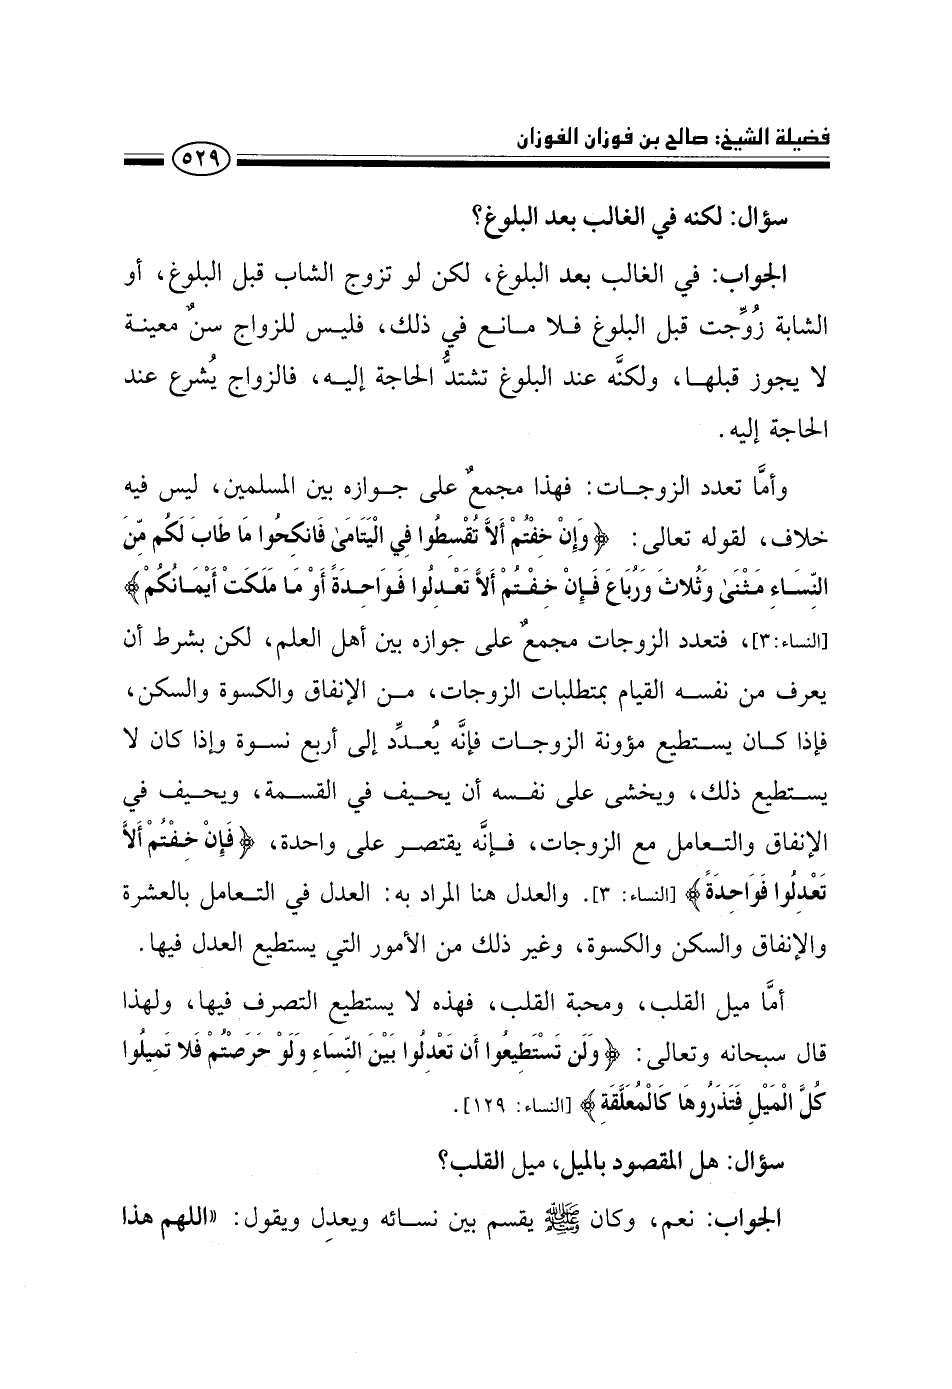 فضيلة الشيخ: صالح بن فوزان الفوزان
٥٢٩
سؤال: لكنه في الغالب بعد البلوغ؟
الجواب: في الغالب بعد البلوغ، لكن لو تزوج الشاب قبل البلوغ، أو
الشابة زُوِّجت قبل البلوغ فلا مانع في ذلك، فليس للزواج سنٌ معينة
لا يجوز قبلها، ولكنَّه عند البلوغ تشتدُّ الحاجة إليه، فالزواج يُشرع عند
الحاجة إليه.
وأمَّا تعدد الزوجات: فهذا مجمعٌ على جوازه بين المسلمين، ليس فيه
خلاف، لقوله تعالى: ﴿وَإِنْ خِفْتُمْ أَلاَّ تُقْسِطُوا فِي الْيَتَامَىٰ فَانكِحُوا مَا طَابَ لَكُم مِّنَ
النِّسَاءِ مَثْنَىٰ وَثُلاثَ وَرُبَاعَ فَإِنْ خِفْتُمْ أَلاَّ تَعْدِلُوا فَوَاحِدَةً أَوْ مَا مَلَكَتْ أَيْمَانُكُمْ﴾
[النساء:٣]، فتعدد الزوجات مجمعٌ على جوازه بين أهل العلم، لكن بشرط أن
يعرف من نفسه القيام بمتطلبات الزوجات، من الإنفاق والكسوة والسكن،
فإذا كان يستطيع مؤونة الزوجات فإنَّه يُعدِّد إلى أربع نسوة وإذا كان لا
يستطيع ذلك، ويخشى على نفسه أن يحيف في القسمة، ويحيف في
الإنفاق والتعامل مع الزوجات، فإنَّه يقتصر على واحدة، ﴿فَإِنْ خِفْتُمْ أَلاَّ
تَعْدِلُوا فَوَاحِدَةً﴾ [النساء: ٣]. والعدل هنا المراد به: العدل في التعامل بالعشرة
والإنفاق والسكن والكسوة، وغير ذلك من الأمور التي يستطيع العدل فيها.
أمَّا ميل القلب، ومحبة القلب، فهذه لا يستطيع التصرف فيها، ولهذا
قال سبحانه وتعالى: ﴿وَلَن تَسْتَطِيعُوا أَن تَعْدِلُوا بَيْنَ النِّسَاءِ وَلَوْ حَرَصْتُمْ فَلا تَمِيلُوا
كُلَّ الْمَيْلِ فَتَذَرُوهَا كَالْمُعَلَّقَةِ﴾ [النساء: ١٢٩].
سؤال: هل المقصود بالميل، ميل القلب؟
الجواب: نعم، وكان ﷺ يقسم بين نسائه ويعدل ويقول: «اللهم هذا